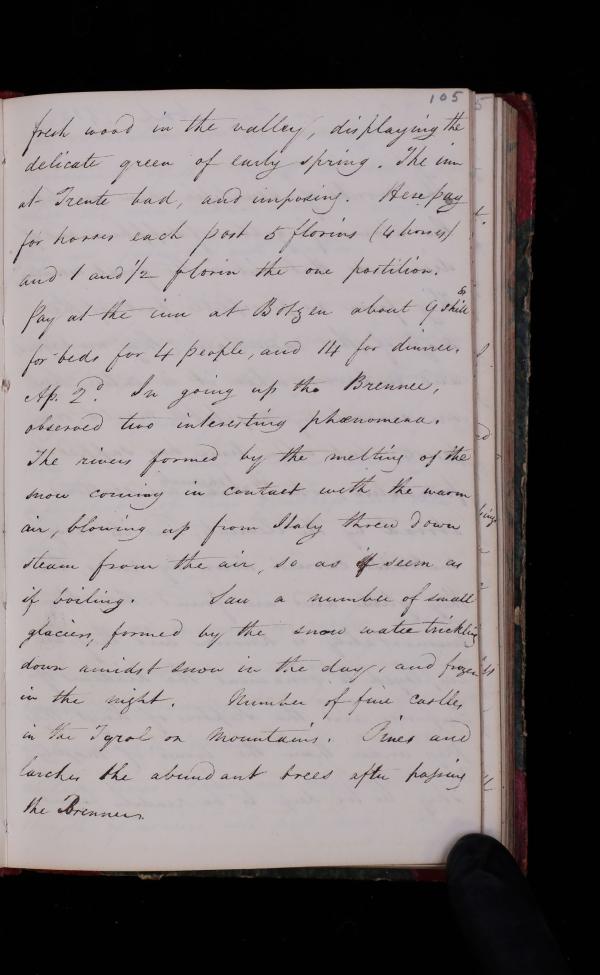 105
fresh wood in the valley, displaying the
delicate green of early spring. The inn
at Trente bad, and imposing. Here pay
for horses each post 5 florins (4 horses)
and 1 and 1/2 florin the one postilion.
Pay at the inn at Botzen about 9 shill
for beds for 4 people, and 14 for dinner.
Ap. 2d. In going up the Brenner,
observed two interesting phænomena.
The rivers formed by the melting of the
snow coming in contact with the warm
air, blowing up from Italy threw down
steam from the air, so as seem as
if boiling. Saw a number of small
glaciers, formed by the snow water trickling
down amidst snow in the day, and frozen
in the night. Number of fine castles
in the Tyrol on mountains. Pines and
larches the abundant trees after passing
the Brenner.